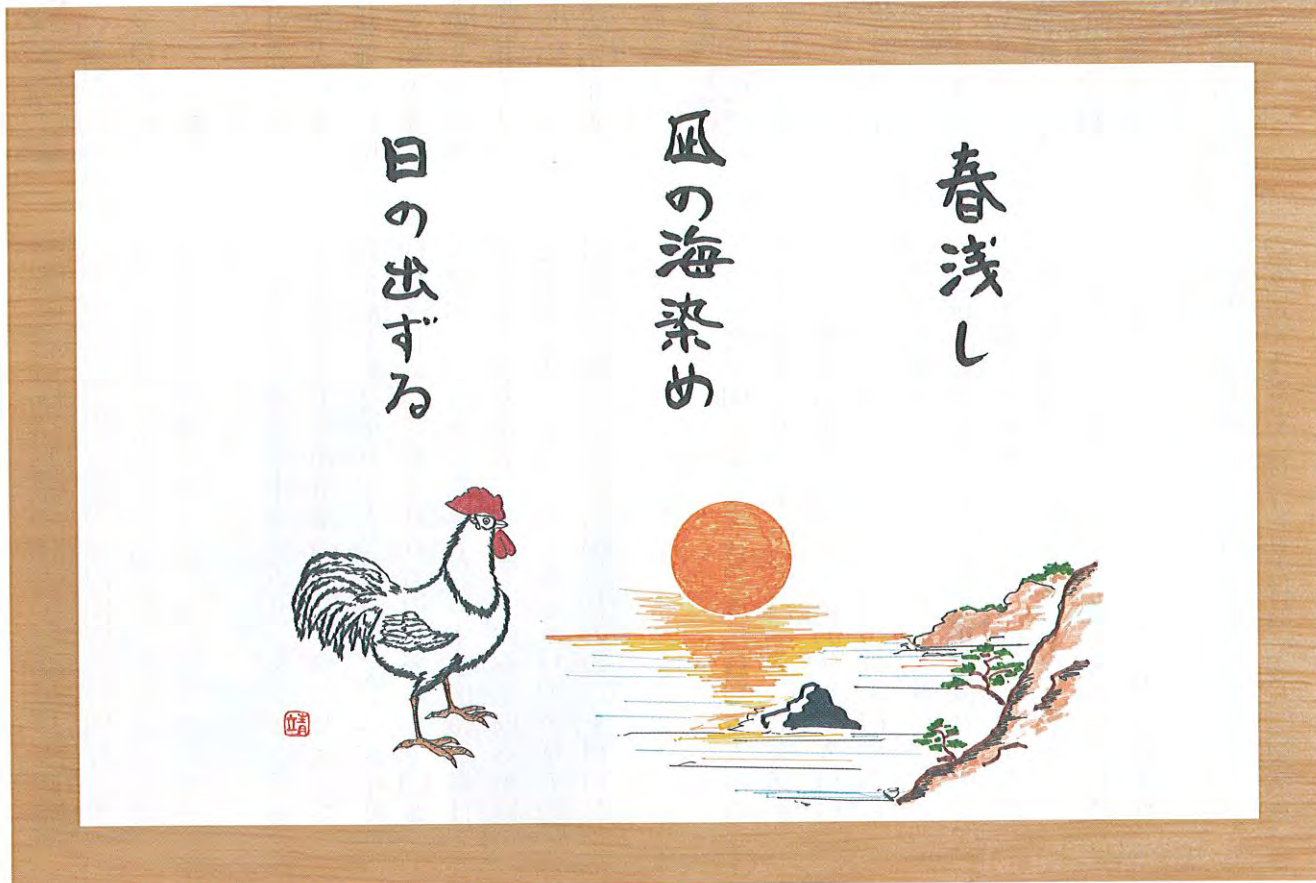 春浅し
凪の海染め
日の出ずる
靖